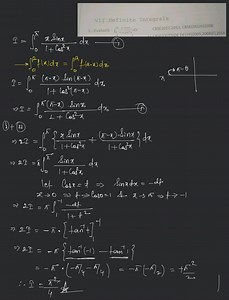 I = ∫₀^π x sinx / 1+cos²x dx —①
∫₀^a f(x)dx = ∫₀^a f(a-x)dx
I = ∫₀^π (π-x) sin(π-x) / 1+cos²(π-x) dx
⇒ I = ∫₀^π (π-x) sinx / 1+cos²x dx —②
①+②
⇒ 2I = ∫₀^π { x sinx / 1+cos²x + (π-x) sinx / 1+cos²x } dx
⇒ 2I = π ∫₀^π sinx / 1+cos²x dx
let cosx = t ⇒ sinx dx = -dt
x→0 ⇒ t→cos0=1 & x→π ⇒ t→-1
⇒ 2I = π ∫₁^-1 -dt / 1+t²
⇒ 2I = -π [tan⁻¹t]₁^-1
⇒ 2I = -π {tan⁻¹(-1) - tan⁻¹1}
= -π {-π/4 - π/4} = -π(-π/2) = +π²/2
∴ I = π²/4
VII Definite Integrals
π
π-θ